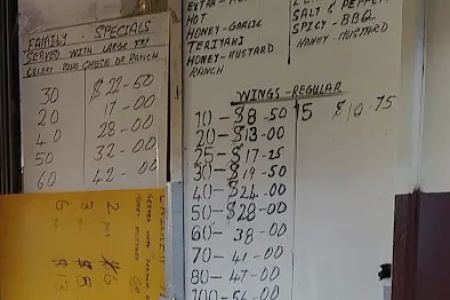 FAMILY - SPECIALS
SERVED WITH LARGE FRY
CELERY BLUE CHESE OR RANCH
30 $22-50
20 17-00
40 28-00
50 32-00
60 42-00
HOT
HONEY-GARLIC
TERIYAKI
HONEY-MUSTARD
RANCH
SALT & PEPPER
SPICY-BBQ
HONEY-MUSTARD
WINGS-REGULAR
10-$8.50 15 $10.75
20-$13-00
25-$17-25
30-$19-50
40-$24-00
50-$28-00
60-38-00
70-41-00
80-47-00
100-56-00
2 $6
3 $8
6 $13